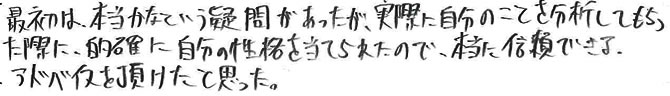 最初は、本当かなという疑問があったが、実際に自分のことを分析してもらっ
た際に、的確に自分の性格を当てられたので、本当に信頼できる
アドバイスを頂けたと思った。